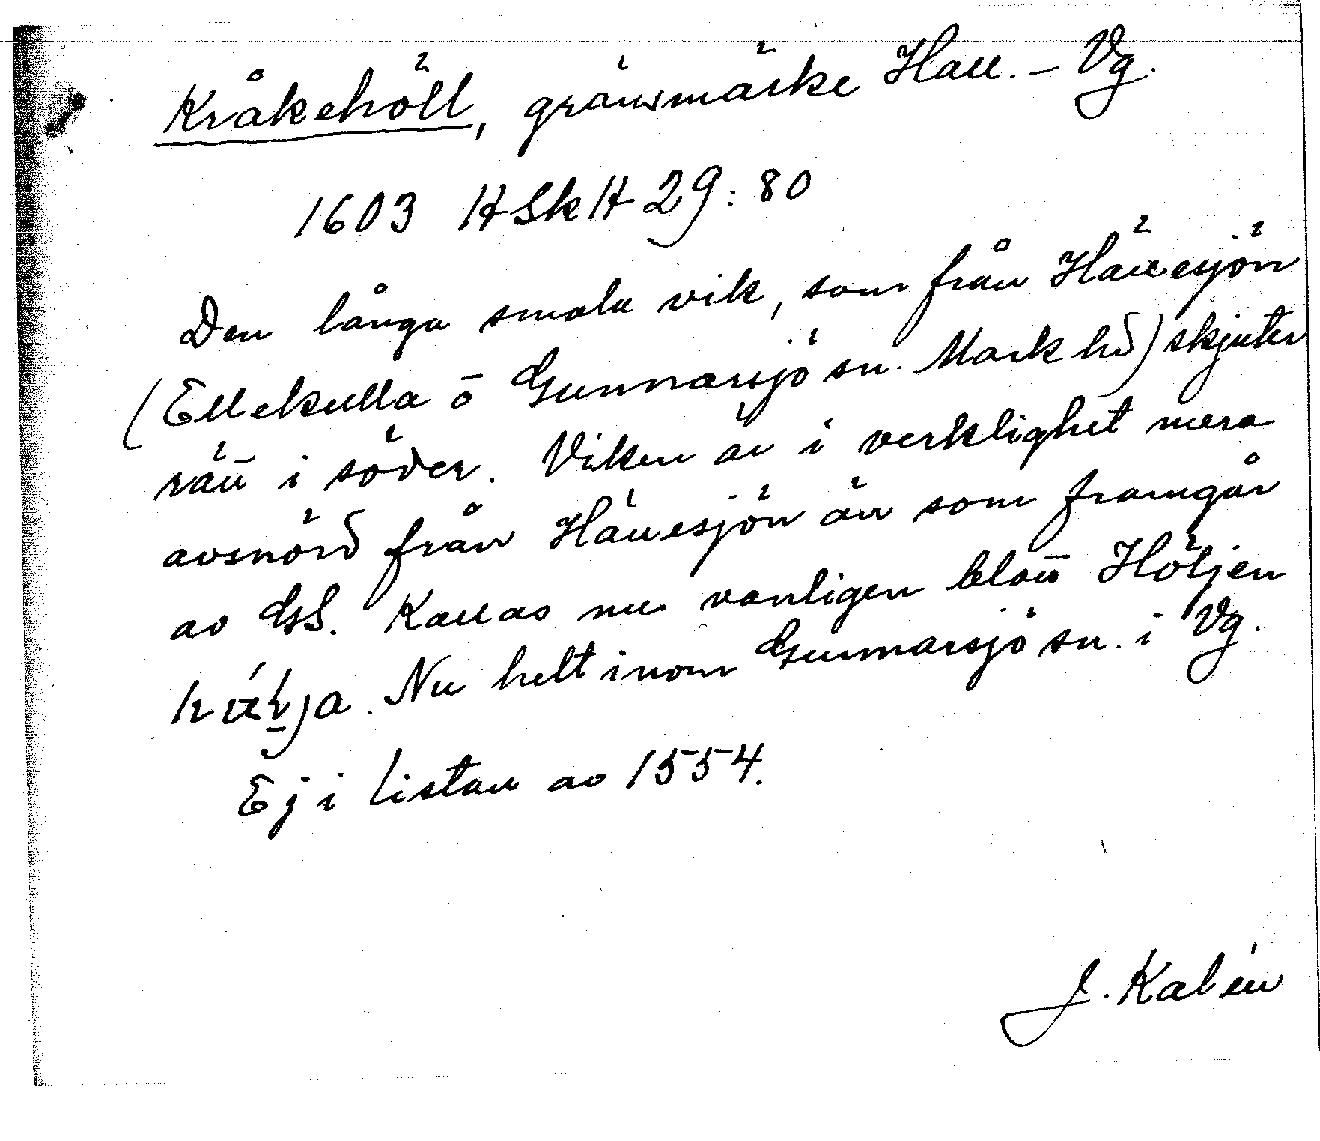 Kråkehöll, gränsmärke Hall. – Vg.
1603 HSkH 29:80
Den långa smala vik, som från Hällesjön
(Ellekulla o Gunnarsjö sn. Mark hd) skjuter
rätt i söder. Viken är i verklighet mera
avsnörd från Hällesjön än som framgår
av GS. Kallas nu vanligen blott Höljen
. Nu helt inom Gunnarsjö sn. i Vg.
Ej i listan av 1554.
J. Kalén